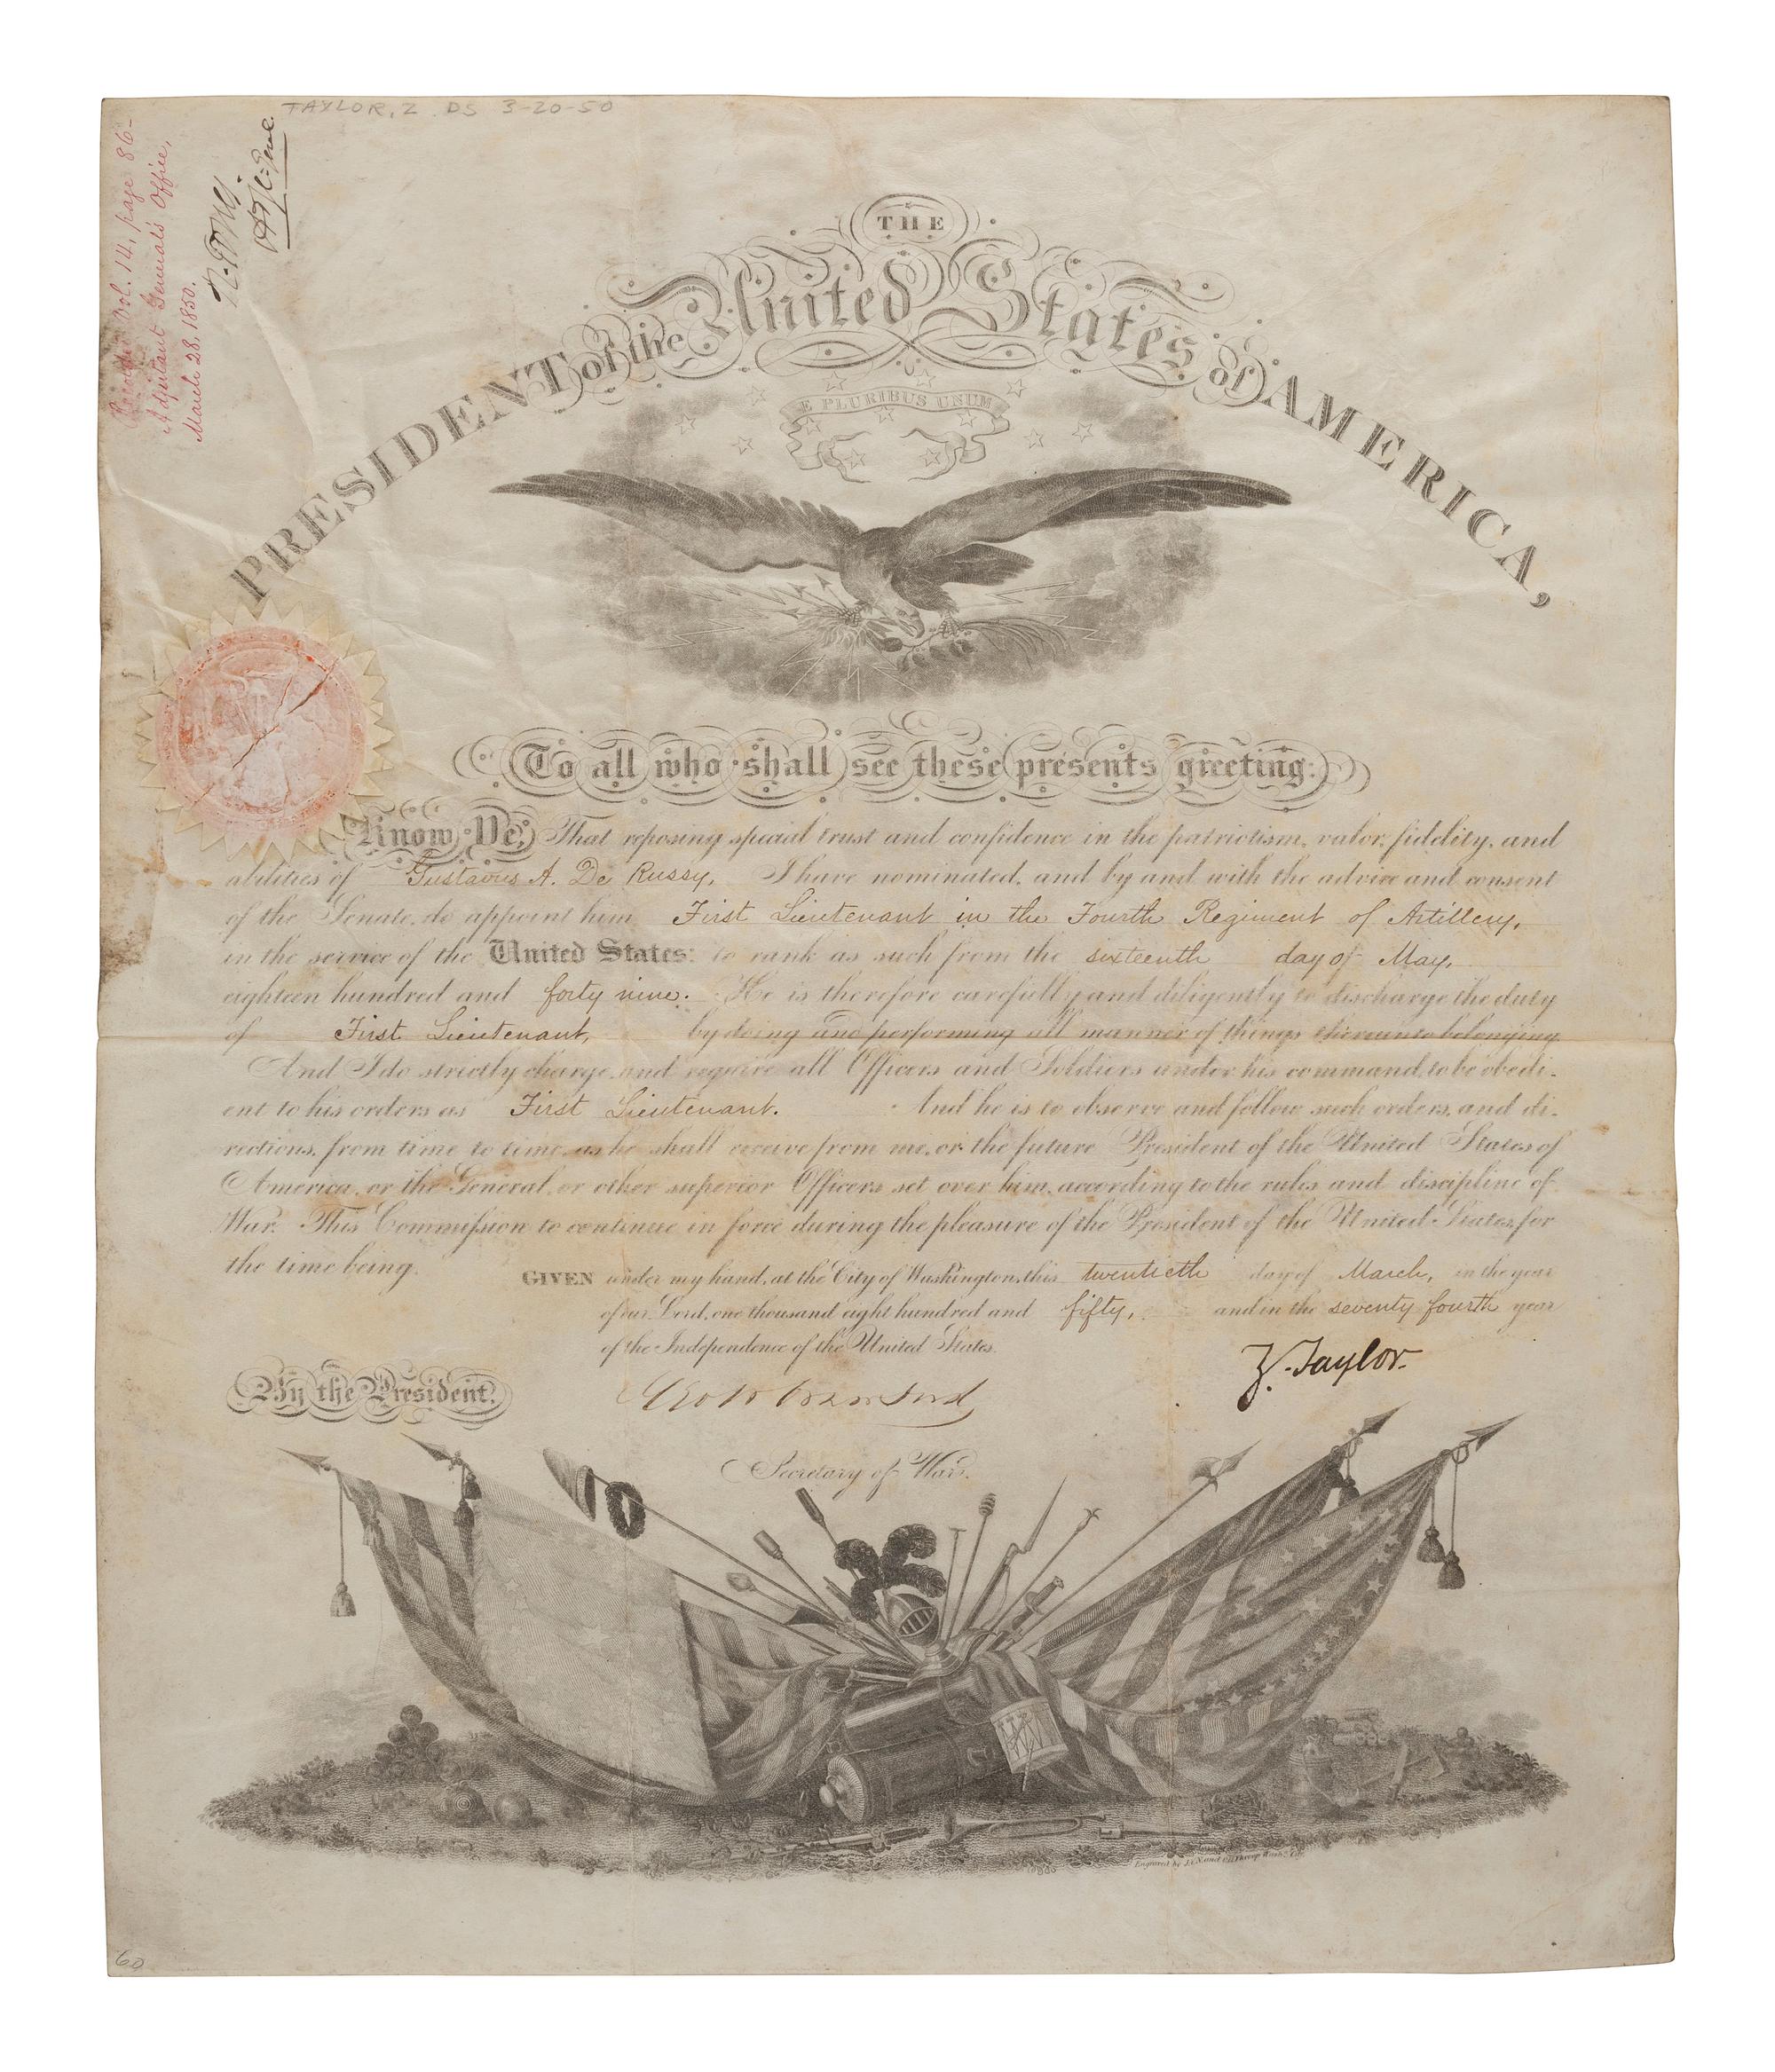 TAYLOR, Z DS 3-20-50
Recorded Vol. 14, page 86-
Adjutant General's Office,
March 28, 1850.
THE
PRESIDENT of the United States of AMERICA,
E PLURIBUS UNUM
To all who shall see these presents greeting:
Know Ye, That reposing special trust and confidence in the patriotism, valor, fidelity, and
abilities of Gustavus A. De Russy, I have nominated, and by and with the advice and consent
of the Senate, do appoint him First Lieutenant in the Fourth Regiment of Artillery,
in the service of the United States: to rank as such from the sixteenth day of May,
eighteen hundred and forty nine. He is therefore carefully and diligently to discharge the duty
of First Lieutenant, by doing and performing all manner of things thereunto belonging
And I do strictly charge, and require all Officers and Soldiers under his command, to be obedi-
ent to his orders as First Lieutenant. And he is to observe and follow such orders, and di-
rections, from time to time, as he shall receive from me, or the future President of the United States of
America, or the General, or other superior Officers set over him, according to the rules and discipline of
War. This Commission to continue in force during the pleasure of the President of the United States, for
the time being.
GIVEN under my hand, at the City of Washington, this twentieth day of March, in the year
of our Lord, one thousand eight hundred and fifty, and in the seventy fourth year
of the Independence of the United States.
Z. Taylor.
By the President,
Geo W Crawford
Secretary of War.
Engraved by
60